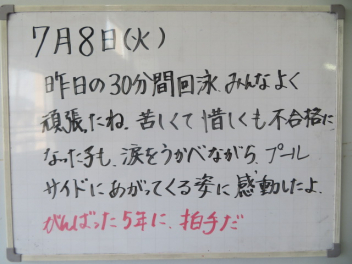 7月8日(火)
昨日の30分間回泳、みんなよく
頑張たね。苦しくて惜しくも不合格に
なった子も、涙をうかべながら、プール
サイドにあがってくる姿に感動したよ。
がんばった5年に、拍手だ